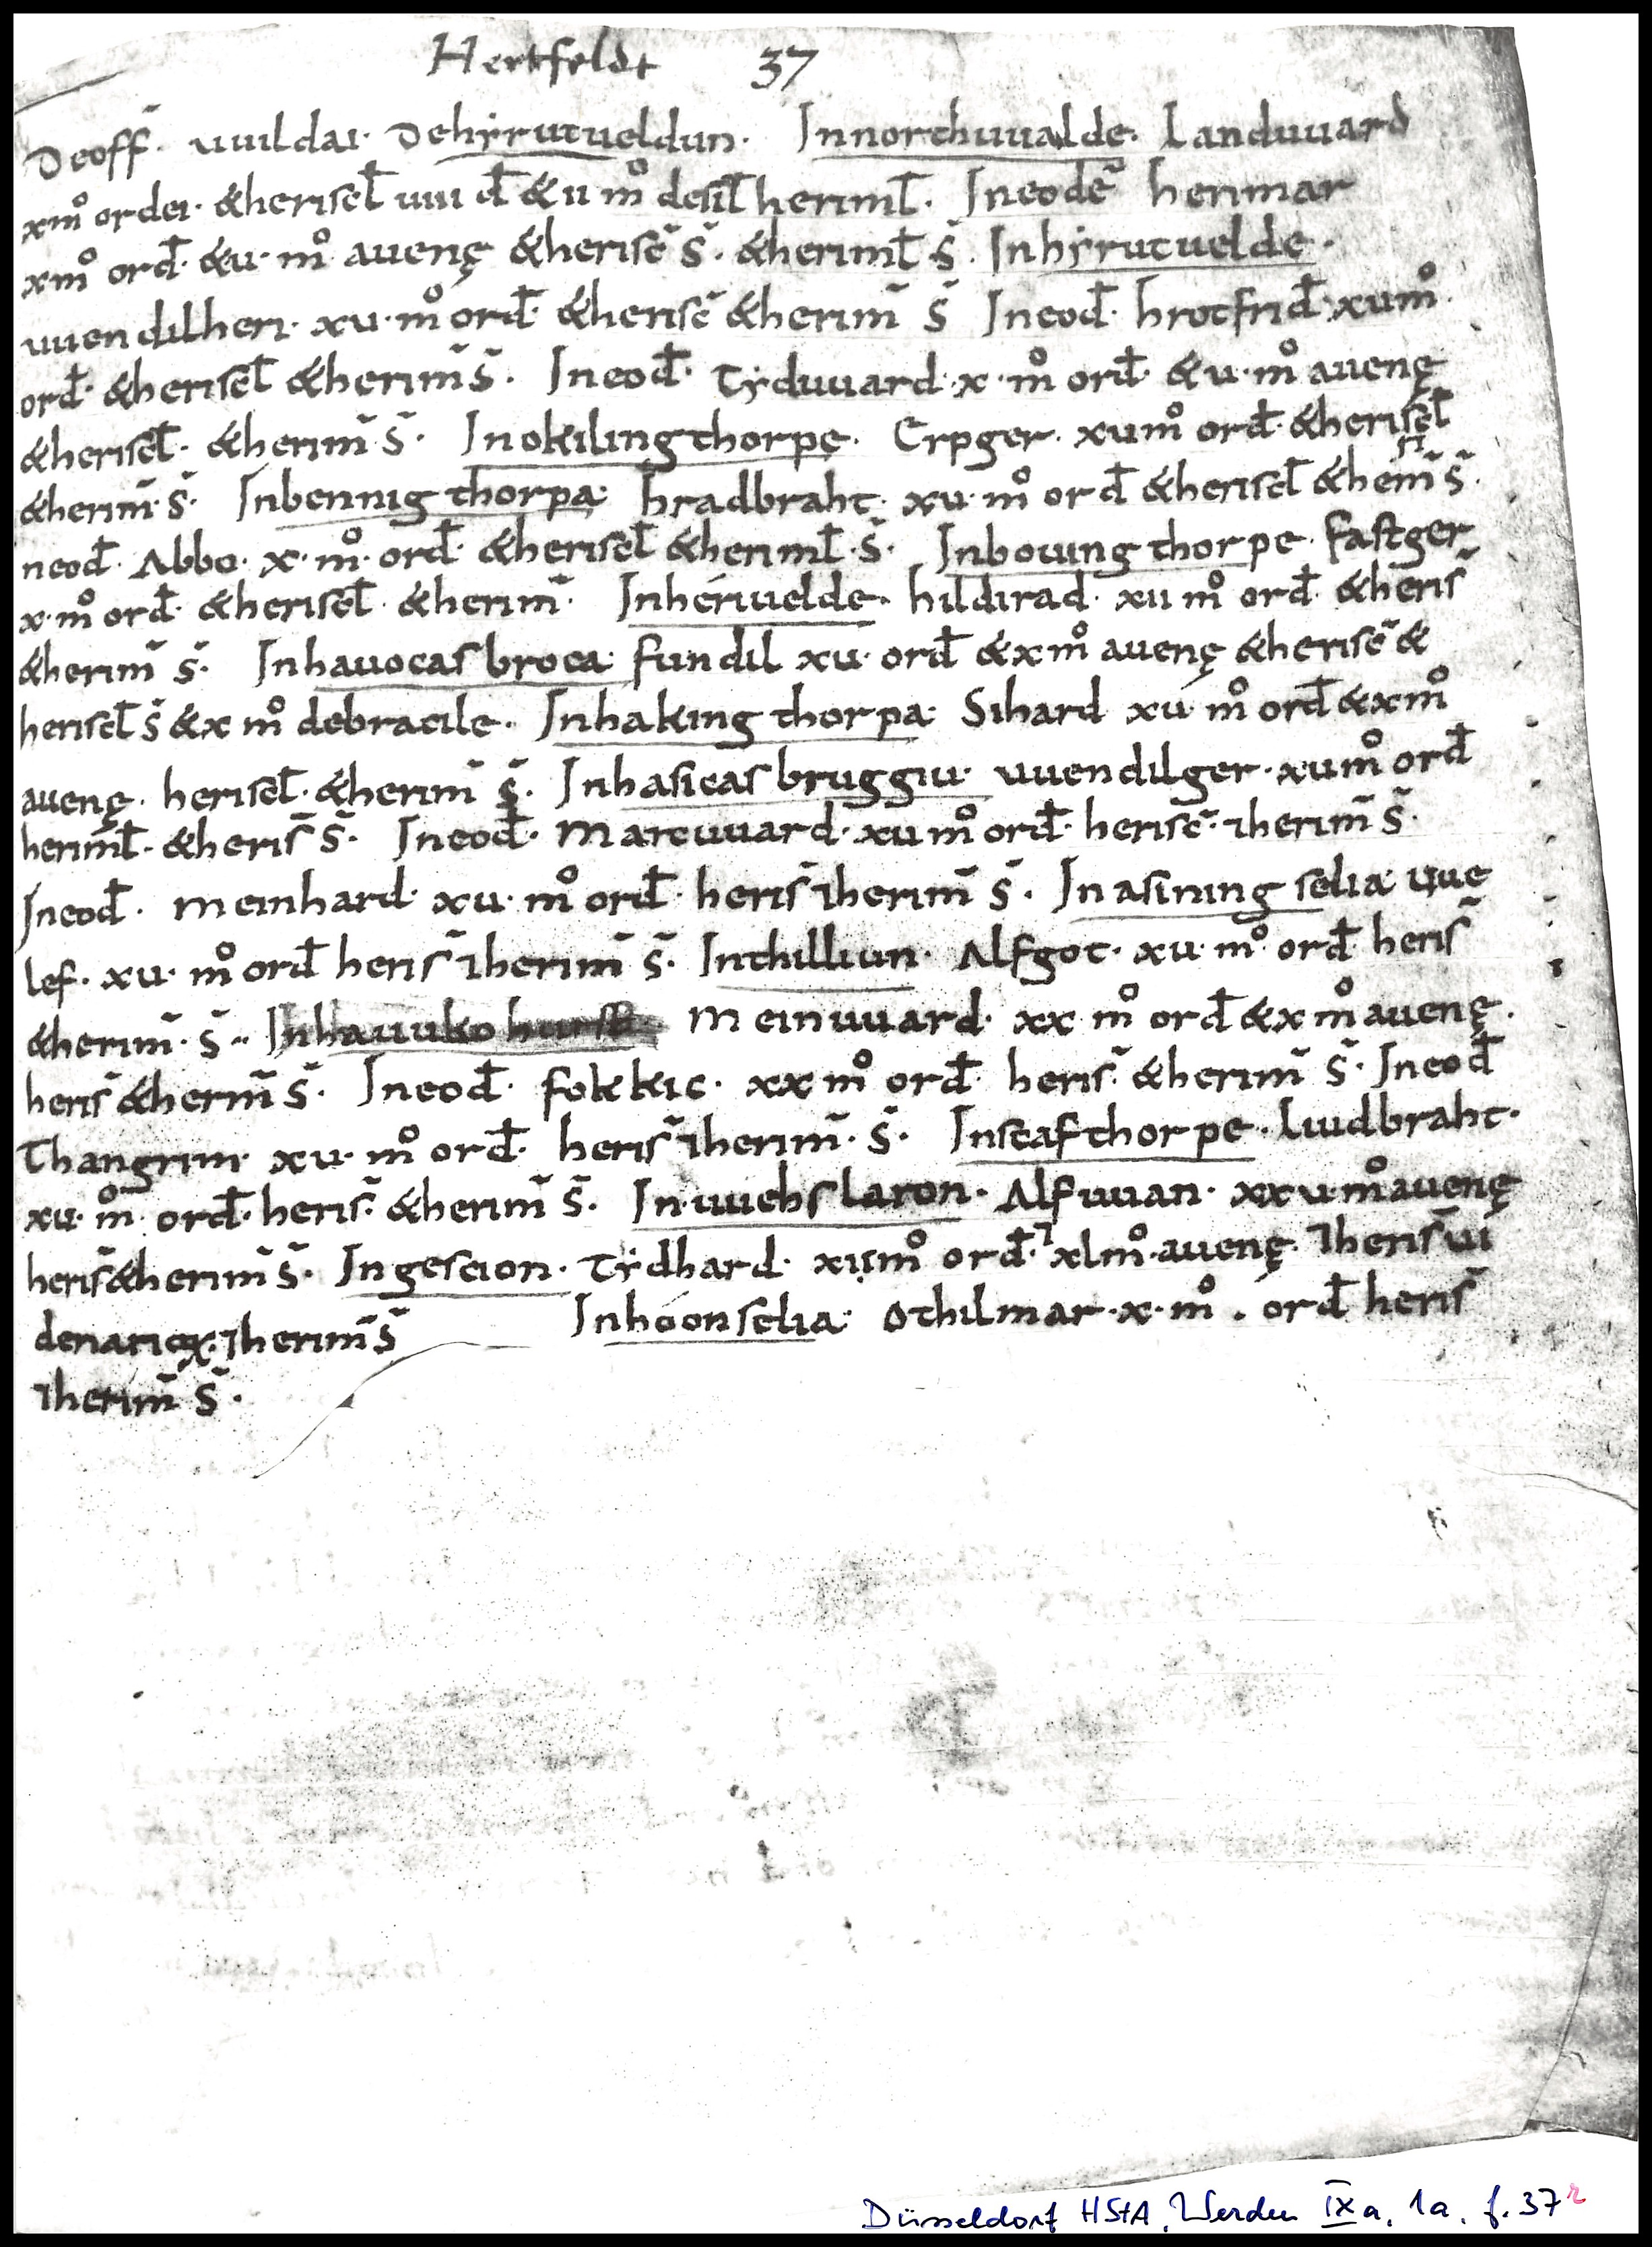 Hertfeldt 37
Deoff̄. uuildai. Dehẏrutueldun. Innorthuualde. Landuuard
xm̊ ordei. &herisel̄ uiii d̄ &ii m̊ desil̄ heriml̄. Ineodē herimar
xm̊ ord̄. &u. m̊ auenę &herisc̄ s̄. &heriml̄ s̄. Inhẏrutuelde.
uuendilheri. xu. m̊ ord̄. &herisc̄ &herim̄ s̄ Ineod̄. hrotfrid̄. xum̊.
ord̄. &herisel̄ &herim̄ s̄. Ineod̄. Tẏduuard. x. m̊ ord̄. &u. m̊ auenę
&herisel̄. &herim̄ s̄. Inokilingthorpę. Erpger. xum̊ ord̄. &herisel̄
&herim̄. s̄. Inbenniḡthorpa. hradbraht. xu. m̊ ord̄ &herisel̄ &herim̄ s̄.
neod̄. Abbo. x. m̊. ord̄. &herisel̄ &heriml̄. s̄. Inbouingthorpe. fastger
x. m̊ ord̄. &herisel̄. &herim̄. Inhériuelde. hildirad. xu m̊ ord̄. &heris̄
&herim̄ s̄. Inhauocasbroca. fundil xu. ord̄ &xm̊ auenę &herisc̄ &
herisel̄ s̄ &x m̊ debracile. Inhakingthorpa. Sihard xu m̊ ord̄ &xm̊
auenę. herisel̄. &herim̄ s̄. Inhasicasbruggiu. uuendilger. xum̊ ord̄
heriml̄. &heris̄ s̄. Ineod̄. Marcuuard. xu m̊ ord̄. herisc̄. ⁊herim̄ s̄.
Ineod̄. meinhard. xu. m̊ ord̄. heris̄ ⁊herim̄ s̄. Inasiningselia. uue
lef. xu. m̊ ord̄ heris̄ ⁊herim̄ s̄. Inthilliun. Alfgot. xu. m̊. ord̄ heris̄
&herim̄. s̄.. Inhauukohurst. Meinuuard. xx m̊ ord̄ &xm̊ auenę.
heris̄ &herim̄ s̄. Ineod̄. fokkic. xx m̊ ord̄. heris̄. &herim̄ s̄. Ineod̄
Thangrim. xu. m̊ ord̄. heris̄ ⁊herim̄. s̄. Inscafthorpe. liudbraht.
xu. m̊. ord̄. heris̄. &herim̄ s̄. In.uuehslaron. Alfuuan. xxu.m̊auenę
heris̄ &herim̄ s̄. Ingescion. Tẏdhard. xum̊ ord̄. ⁊ xlm̊. auenę. ⁊heris̄ ui
denariox. ⁊herim̄ s̄ Inhóonselia. Othilmar. x. m̊. ord̄ heris̄
⁊herim̄ s̄.
Düsseldorf HStA, Werden IXa, 1a, f. 37r